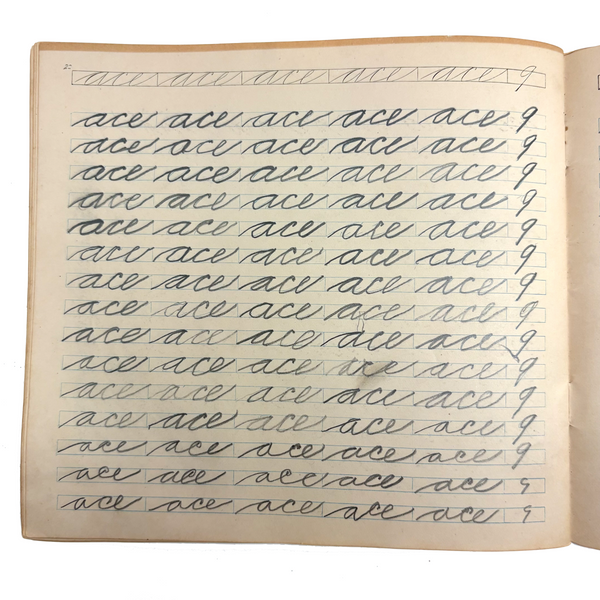 ace ace ace ace ace 9
ace ace ace ace ace 9
ace ace ace ace ace 9
ace ace ace ace ace 9
ace ace ace ace ace 9
ace ace ace ace ace 9
ace ace ace ace ace 9
ace ace ace ace ace 9
ace ace ace ace ace 9
ace ace ace ace ace 9
ace ace ace ace ace 9
ace ace ace ace ace 9
ace ace ace ace ace 9
ace ace ace ace ace 9
ace ace ace ace ace 9
ace ace ace ace ace 9